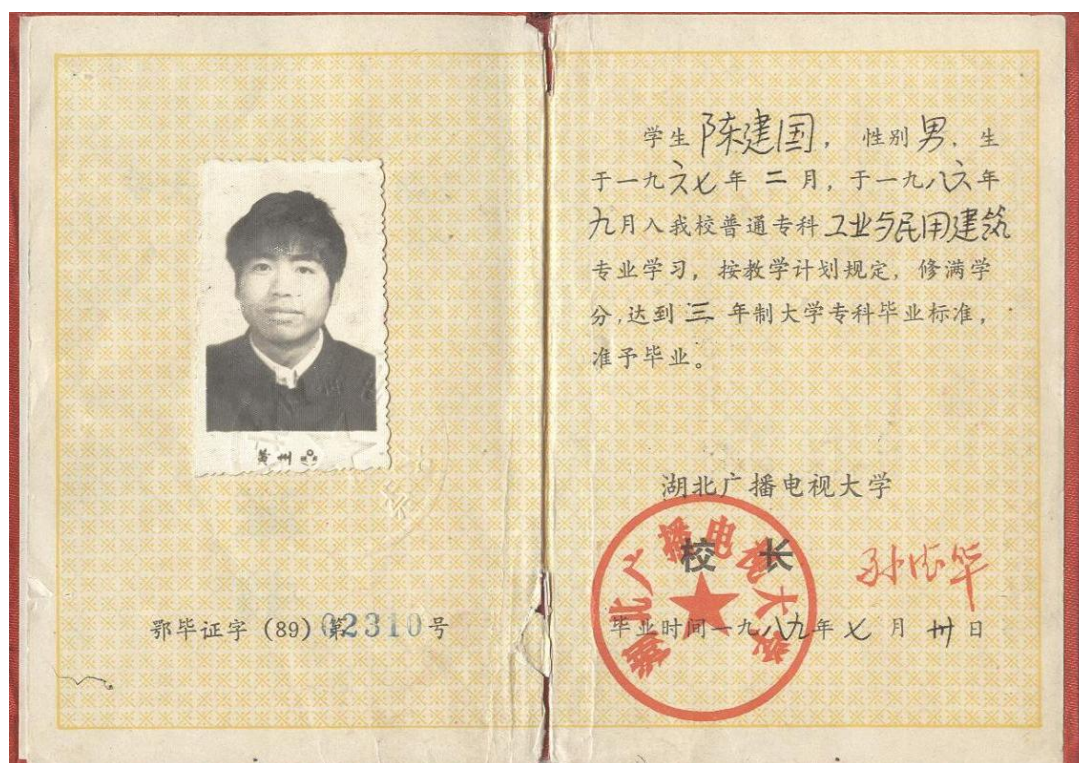 黄州
鄂毕证字 (89) 第02310号
学生 陈建国, 性别 男, 生
于一九六七年 二 月, 于一九八六年
九月入我校普通专科 工业与民用建筑
专业学习, 按教学计划规定, 修满学
分, 达到 三 年制大学专科毕业标准,
准予毕业。
湖北广播电视大学
校 长
毕业时间一九八九年 七 月 卅 日
湖北广播电视大学